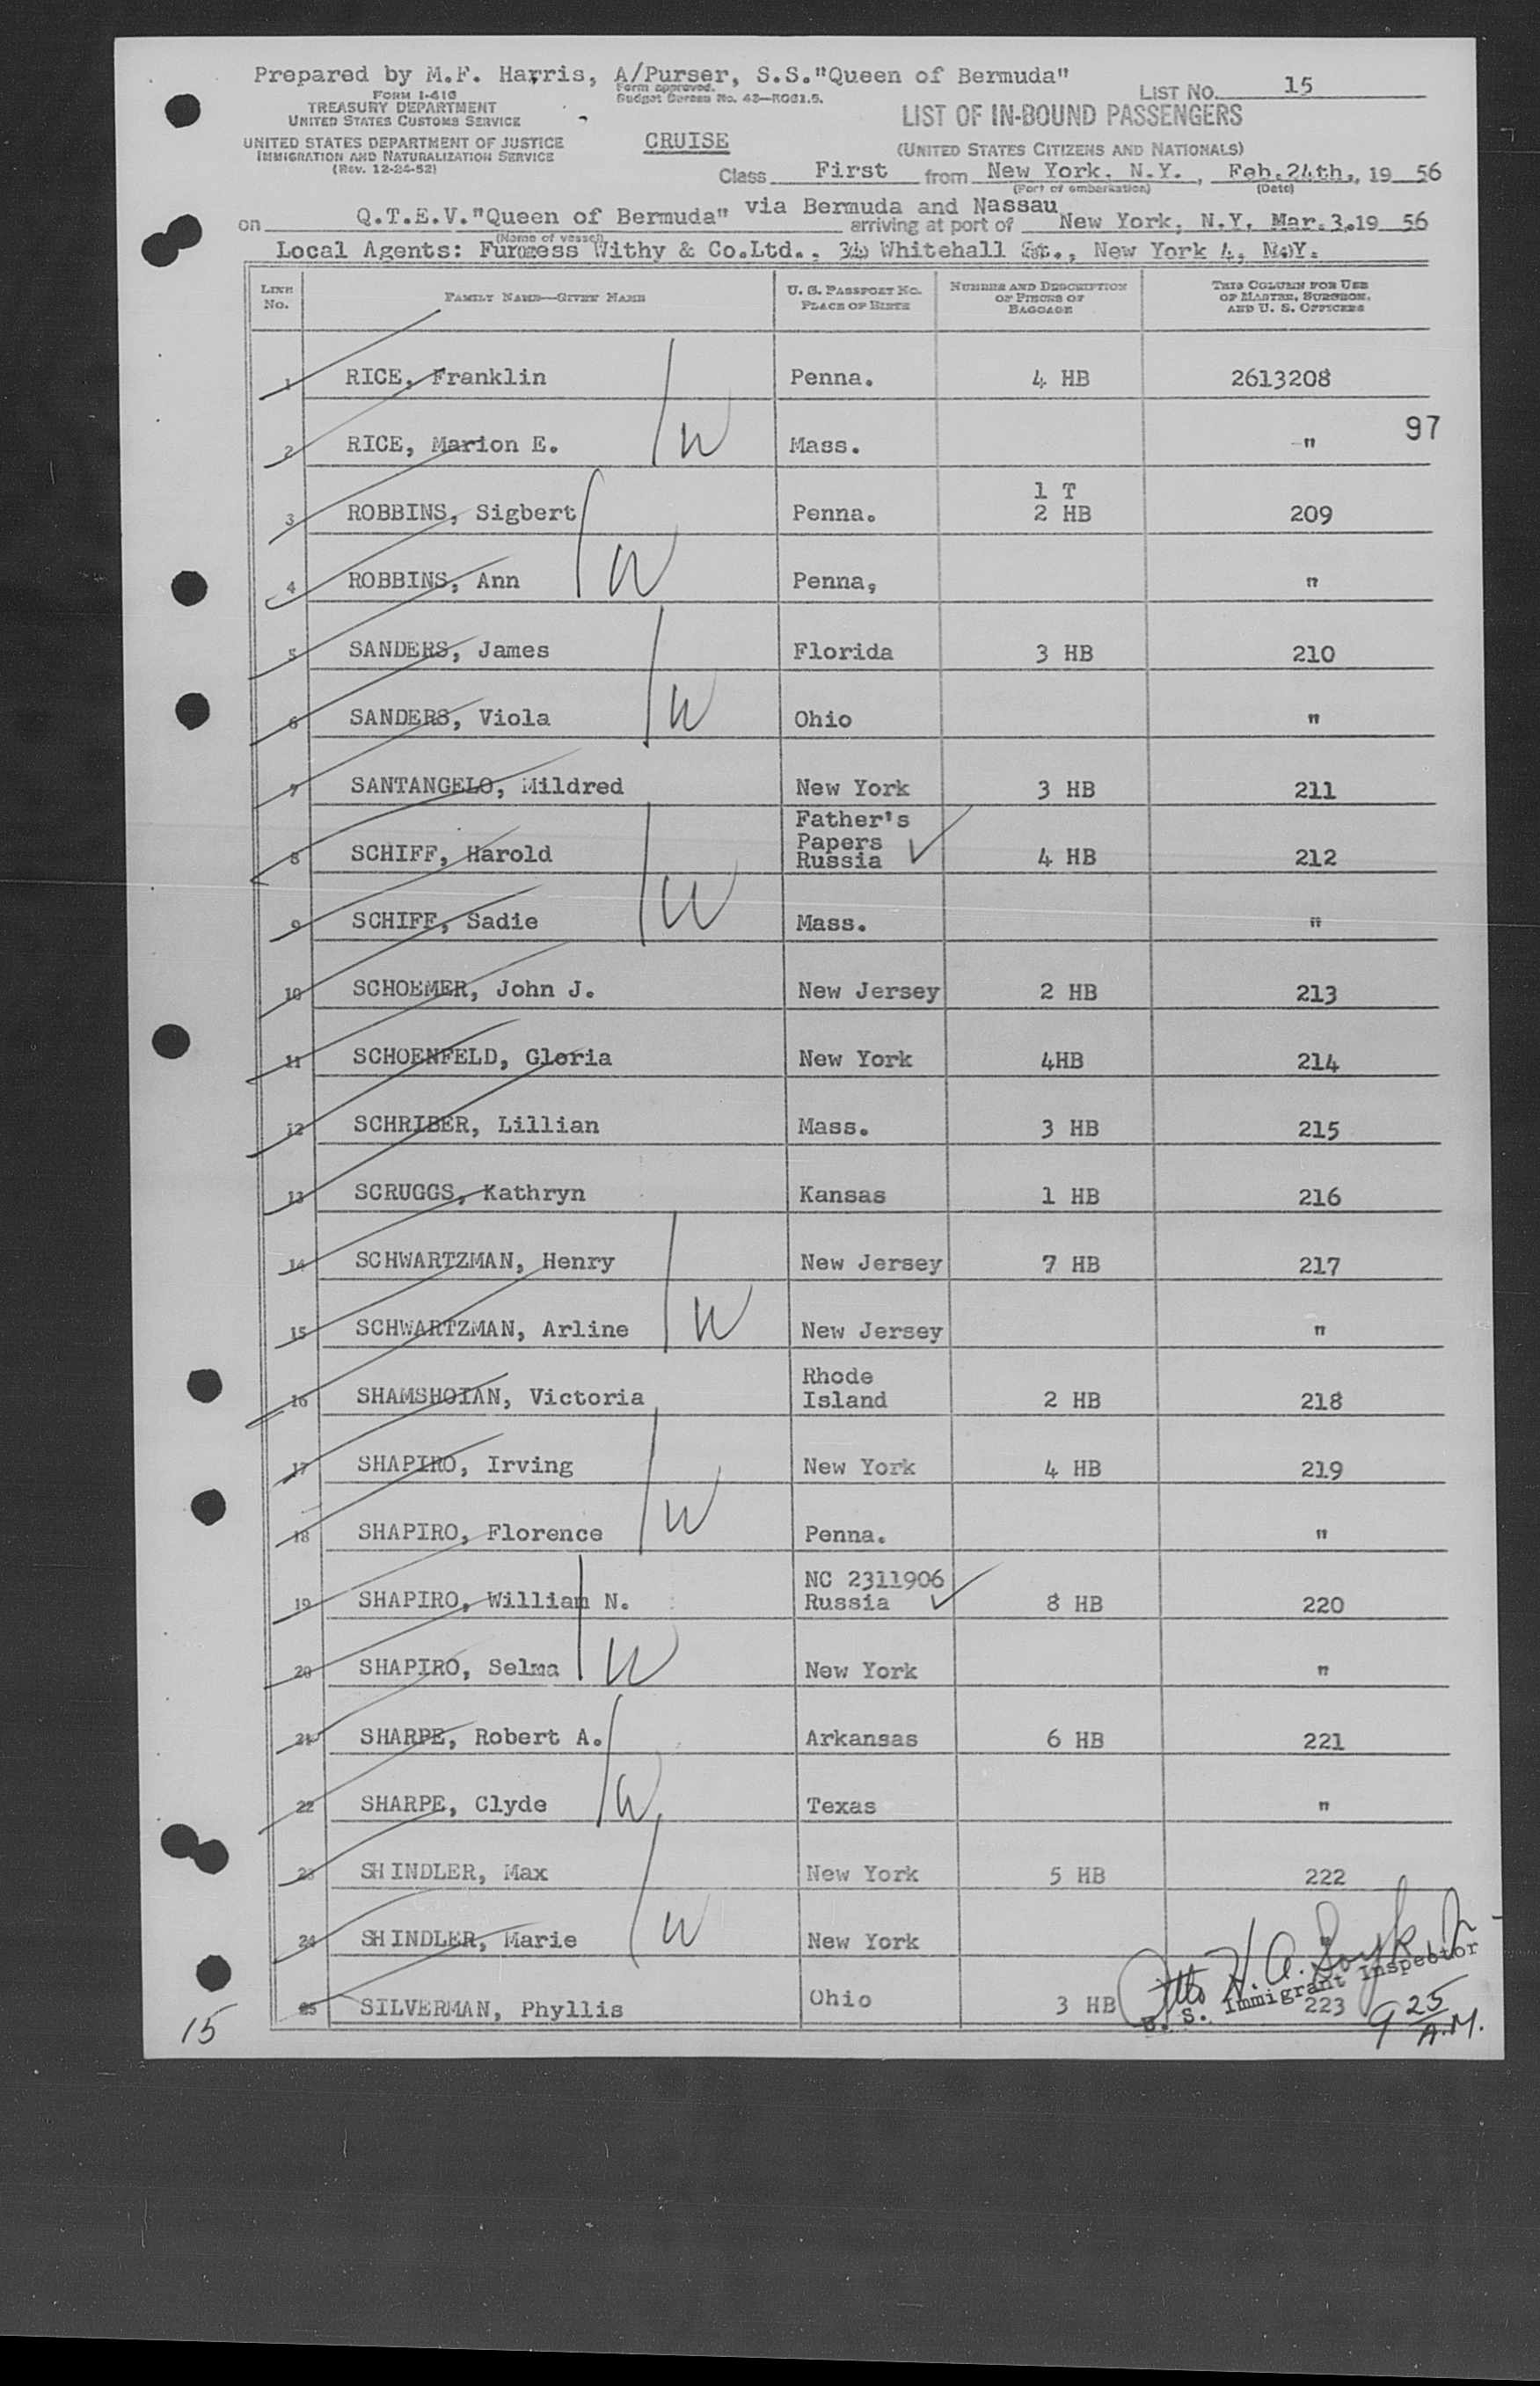 Prepared by M.F. Harris, A/Purser, S.S."Queen of Bermuda"
FORM I-418
TREASURY DEPARTMENT
UNITED STATES CUSTOMS SERVICE
UNITED STATES DEPARTMENT OF JUSTICE
IMMIGRATION AND NATURALIZATION SERVICE
(Rev. 12-24-52)
Form approved.
Budget Bureau No. 43—R061.5.
CRUISE
LIST NO. 15
LIST OF IN-BOUND PASSENGERS
(UNITED STATES CITIZENS AND NATIONALS)
Class First from New York, N.Y., Feb.24th., 19 56
(Port of embarkation) (Date)
on Q.T.E.V."Queen of Bermuda" via Bermuda and Nassau arriving at port of New York, N.Y. Mar.3. 19 56
(Name of vessel)
Local Agents: Furness Withy & Co.Ltd., 34 Whitehall St., New York 4, N.Y.
LINE No. FAMILY NAME—GIVEN NAME U. S. PASSPORT NO. PLACE OF BIRTH NUMBER AND DESCRIPTION OF PIECES OF BAGGAGE THIS COLUMN FOR USE OF MASTER, SURGEON, AND U. S. OFFICERS
1 RICE, Franklin Penna. 4 HB 2613208
97
2 RICE, Marion E. W Mass. "
3 ROBBINS, Sigbert Penna. 1 T 2 HB 209
4 ROBBINS, Ann W Penna, "
5 SANDERS, James Florida 3 HB 210
6 SANDERS, Viola W Ohio "
7 SANTANGELO, Mildred New York 3 HB 211
8 SCHIFF, Harold Father's Papers Russia ✓ 4 HB 212
9 SCHIFF, Sadie W Mass. "
10 SCHOEMER, John J. New Jersey 2 HB 213
11 SCHOENFELD, Gloria New York 4HB 214
12 SCHRIBER, Lillian Mass. 3 HB 215
13 SCRUGGS, Kathryn Kansas 1 HB 216
14 SCHWARTZMAN, Henry New Jersey 7 HB 217
15 SCHWARTZMAN, Arline W New Jersey "
16 SHAMSHOIAN, Victoria Rhode Island 2 HB 218
17 SHAPIRO, Irving New York 4 HB 219
18 SHAPIRO, Florence W Penna. "
19 SHAPIRO, William N. NC 2311906 Russia ✓ 8 HB 220
20 SHAPIRO, Selma W New York "
21 SHARPE, Robert A. Arkansas 6 HB 221
22 SHARPE, Clyde W Texas "
23 SHINDLER, Max New York 5 HB 222
24 SHINDLER, Marie W New York "
25 SILVERMAN, Phyllis Ohio 3 HB 223
Otto H. A.
U. S. Immigrant Inspector
9 25 A.M.
15